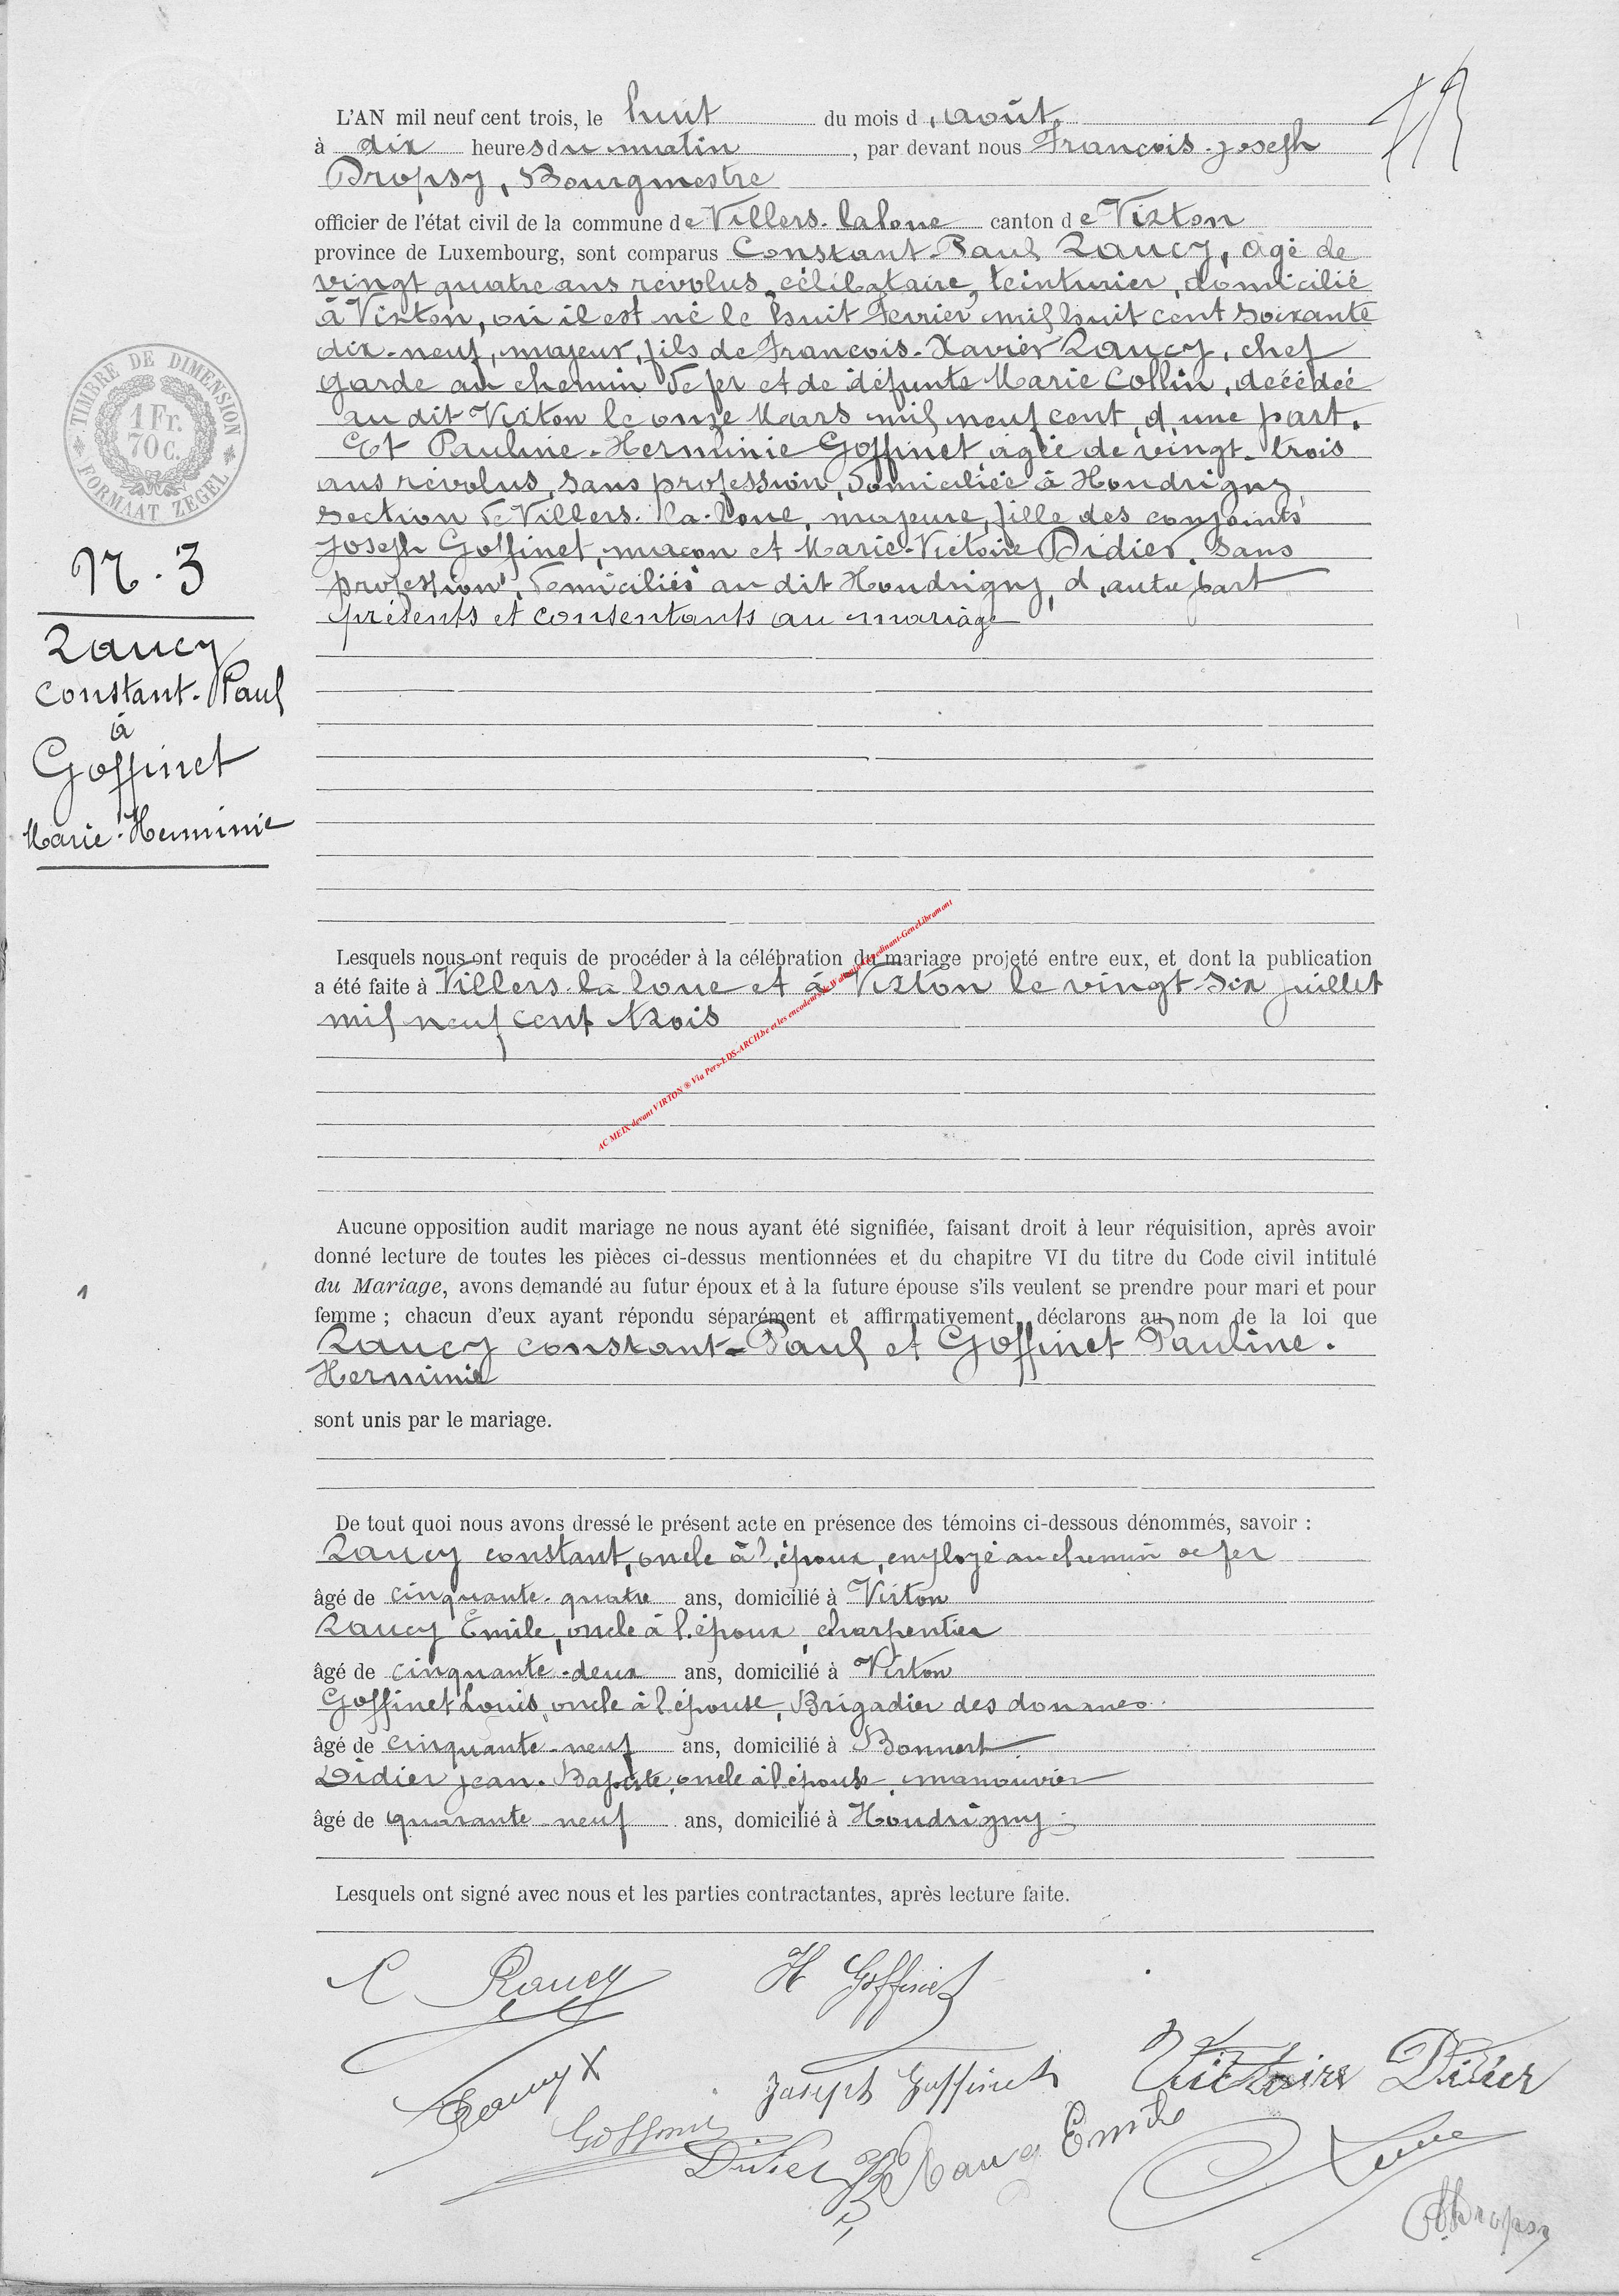 L'AN mil neuf cent trois, le huit du mois d'août
à dix heures du matin, par devant nous François-Joseph
Dropsy, Bourgmestre
officier de l'état civil de la commune de Villers-la-loue canton de Virton
province de Luxembourg, sont comparus Constant-Paul Raucy, âgé de
vingt quatre ans révolus, célibataire, teinturier, domicilié
à Virton, où il est né le huit Fevrier mil huit cent soixante
dix-neuf, majeur, fils de François-Xavier Raucy, chef
garde au chemin de fer et de défunte Marie Collin, décédée
au dit Virton le onze Mars mil neuf cent, d'une part.
Et Pauline-Herminie Goffinet âgée de vingt-trois
ans révolus, sans profession, domiciliée à Houdrigny
section de Villers-la-loue, majeure, fille des conjoints
Joseph Goffinet, maçon et Marie-Victoire Didier, sans
profession, domiciliés au dit Houdrigny, d'autre part
présents et consentants au mariage
TIMBRE DE DIMENSION
1 Fr.
70 c.
FORMAAT ZEGEL
N. 3
Raucy
Constant-Paul
à
Goffinet
Marie-Herminie
Lesquels nous ont requis de procéder à la célébration du mariage projeté entre eux, et dont la publication
a été faite à Villers-la-loue et à Virton le vingt-six juillet
mil neuf cent trois
AC MEIX devant VIRTON ® Via Pers-LDS-ARCH.be et les encodeurs de
Aucune opposition audit mariage ne nous ayant été signifiée, faisant droit à leur réquisition, après avoir
donné lecture de toutes les pièces ci-dessus mentionnées et du chapitre VI du titre du Code civil intitulé
du Mariage, avons demandé au futur époux et à la future épouse s'ils veulent se prendre pour mari et pour
femme ; chacun d'eux ayant répondu séparément et affirmativement, déclarons au nom de la loi que
Raucy constant-Paul et Goffinet Pauline-
Herminie
sont unis par le mariage.
De tout quoi nous avons dressé le présent acte en présence des témoins ci-dessous dénommés, savoir :
Raucy constant, oncle à l'époux, employé au chemin de fer
âgé de cinquante-quatre ans, domicilié à Virton
Raucy Émile, oncle à l'époux, charpentier
âgé de cinquante-deux ans, domicilié à Virton
Goffinet Louis, oncle à l'épouse, Brigadier des douanes
âgé de cinquante-neuf ans, domicilié à Bonnert
Didier jean-Baptiste, oncle à l'épouse, manouvrier
âgé de quarante-neuf ans, domicilié à Houdrigny
Lesquels ont signé avec nous et les parties contractantes, après lecture faite.
C Raucy H Goffinet
Raucy X Joseph Goffinet Victoire Didier
Goffinet Didier Raucy Emile
Dropsy